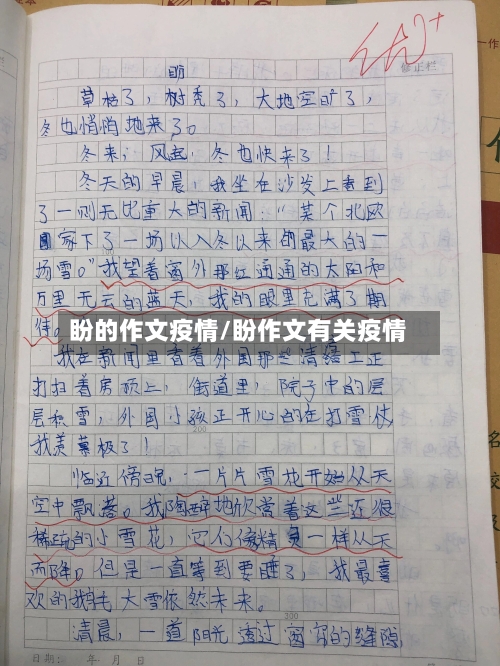 优+
修正栏
盼
草枯了，树秃了，大地空旷了，
冬也悄悄地来了。
冬来，风起，冬也快来了！
冬天的早晨，我坐在沙发上看到
了一则无比重大的新闻：“某个北欧
国家下了一场以入冬以来的最大的一
场雪。”我望着窗外那红通通的太阳和
万里无云的蓝天，我的眼里充满了期
待。
盼的作文疫情/盼作文有关疫情
我在新闻里看着外国那些清洁工正
打扫着房顶上，街道里，院子中的层
层积雪，外国小孩正开心的在打雪仗
我羡慕极了！
200
临近傍晚，一片片雪花开始从天
空中飘落。我陶醉地欣赏着这些还很
稀疏的小雪花，它们像精灵一样从天
而降。但是一直等到要睡了，我最喜
欢的鹅毛大雪依然未来。
300
清晨，一道阳光透过窗帘的缝隙
日期： 年 月 日